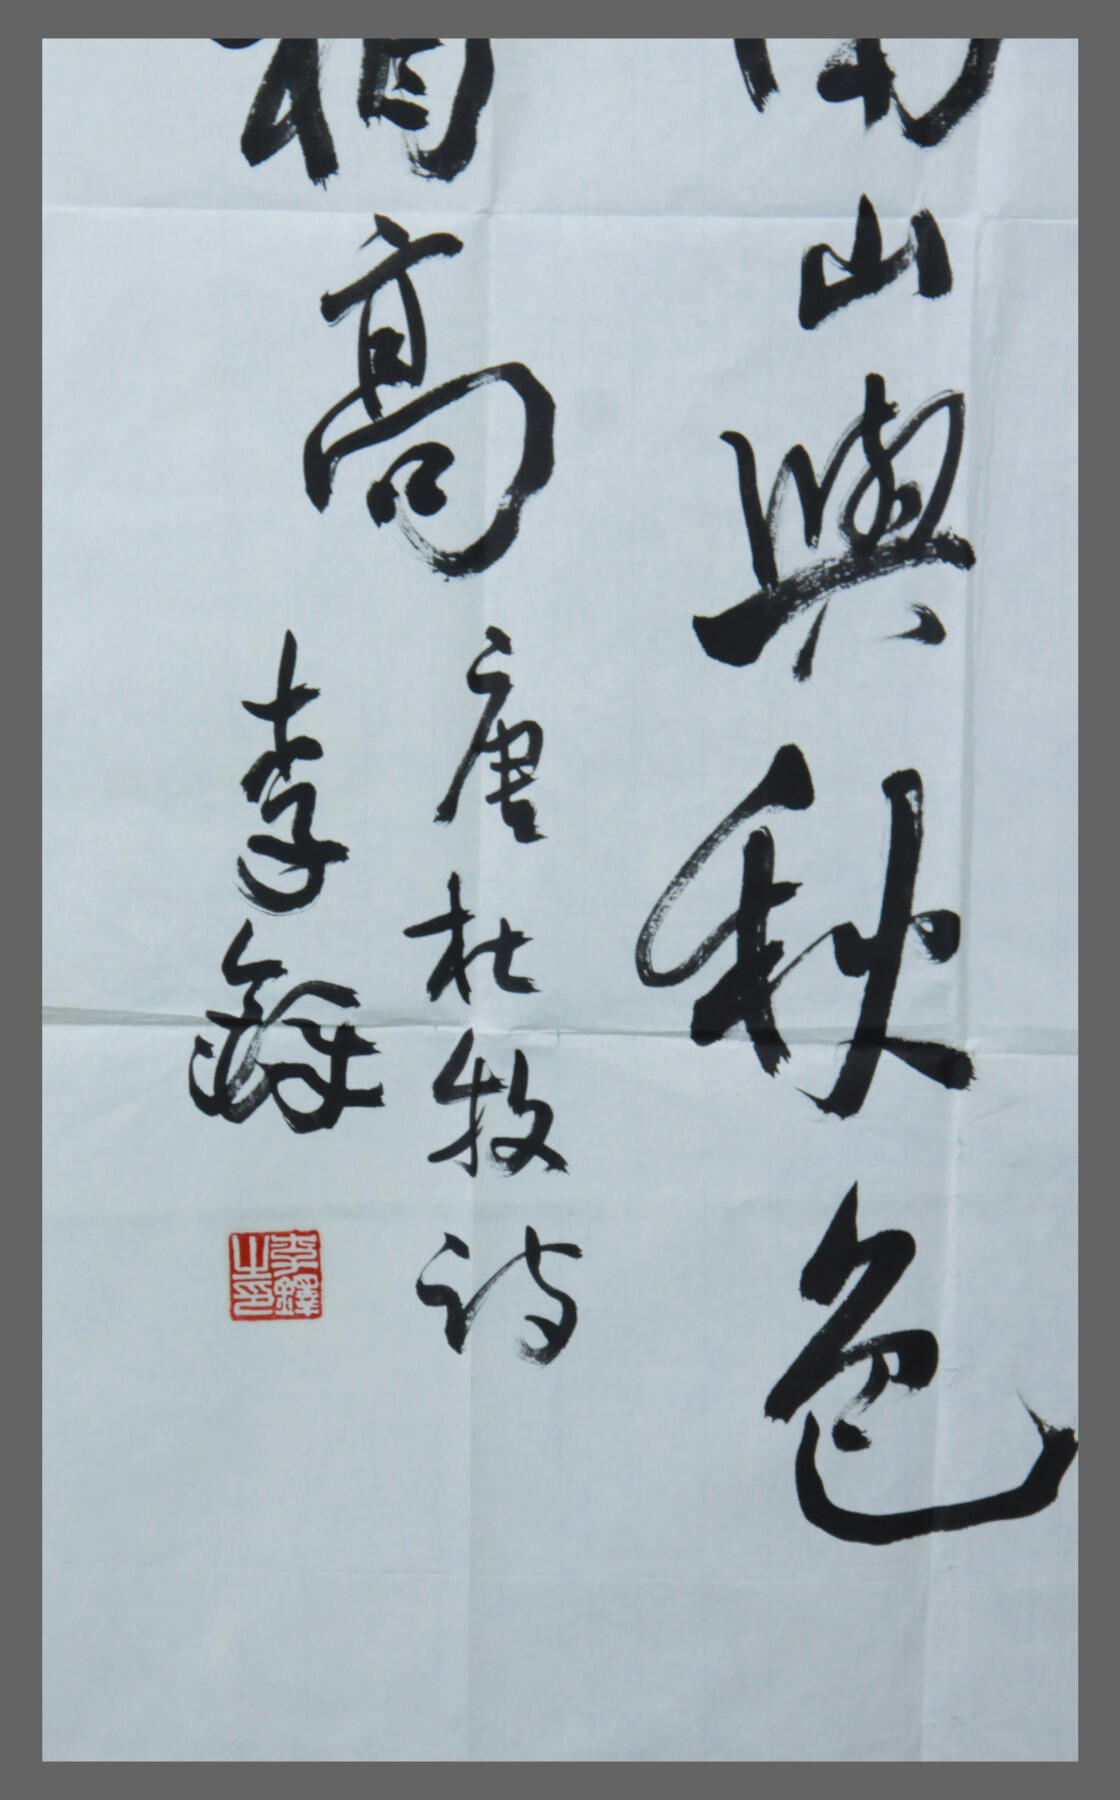 南山與秋色
相高
唐杜牧诗
李鐸
李鐸之印